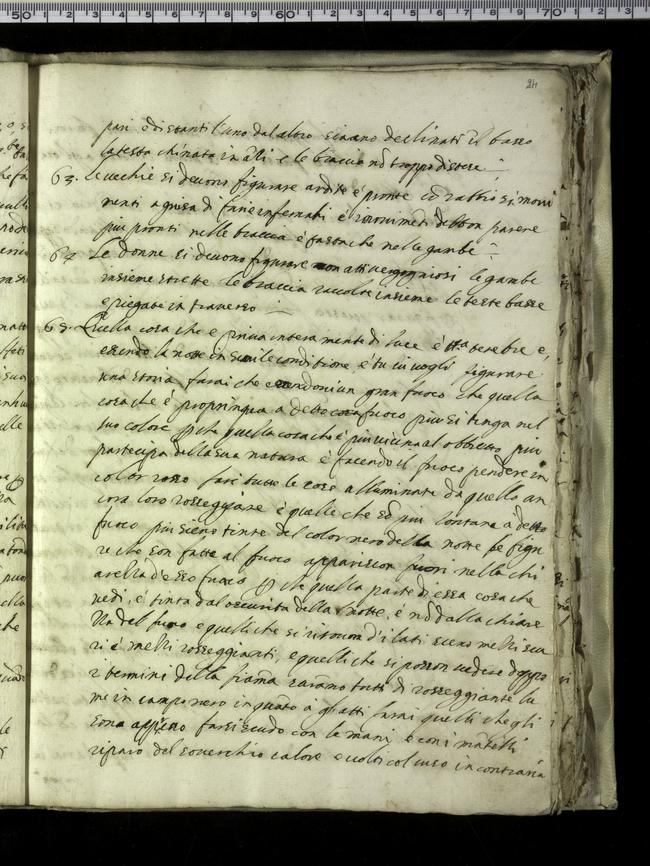 24
pari ò distanti l'uno dal altro siano declinati il basso
la testa chinata inãzi e le braccia nõ troppo distese
63. Le vechie si devono figurare ardite e pronte cõ rabbiosi movi
menti a guisa di furie infernali e i movimẽti debbon parere
piu pronti nelle braccia e testa che nelle gambe
64 Le donne si devono figurare con atti vergogniosi le gambe
insieme strette le braccia raccolte insieme le teste basse
e piegate in traverso
65. Quella cosa che e priva interamente di luce é tutta tenebre e,
essendo la notte in simile conditione é tu vi vogli figurare
una storia farai che essendovi un gran fuoco che quella
cosa che é propinqua a detto fuoco piu si tenga nel
suo colore che quella cosa che é piu vicina al obbietto piu
partecipa della sua natura é facendo il fuoco pendere in
color rosso farai tutte le cose alluminate da quello an
cora loro rosseggiare é quelle che sõ piu lontane a detto
fuoco piu sieno tinte del color nero della notte le figu
re che son fatte al fuoco apparischin scuri nella chi
arezza d'esso fuoco che quella parte d'essa cosa che
vedi, é tinta dal oscurita della notte, é nõ dalla chiare
zza del fuoco e quelli che si ritrovon d'i lati sieno mezzi scu
ri é mezzi rosseggianti, e quelli che si posson vedere doppo
i termini della fiama sarãno tutti di rosseggiante lu
me in campo nero in quãto a gli atti farai quelli che gli
sono appresso farsi scudo con le mani e con i mãtelli
riparo del soverchio calore e volti col viso in contraria